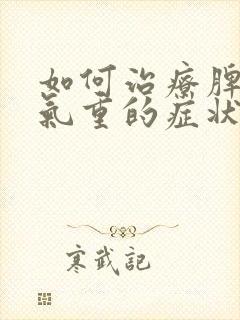 如何治療脾
氣重的症狀
寒武記